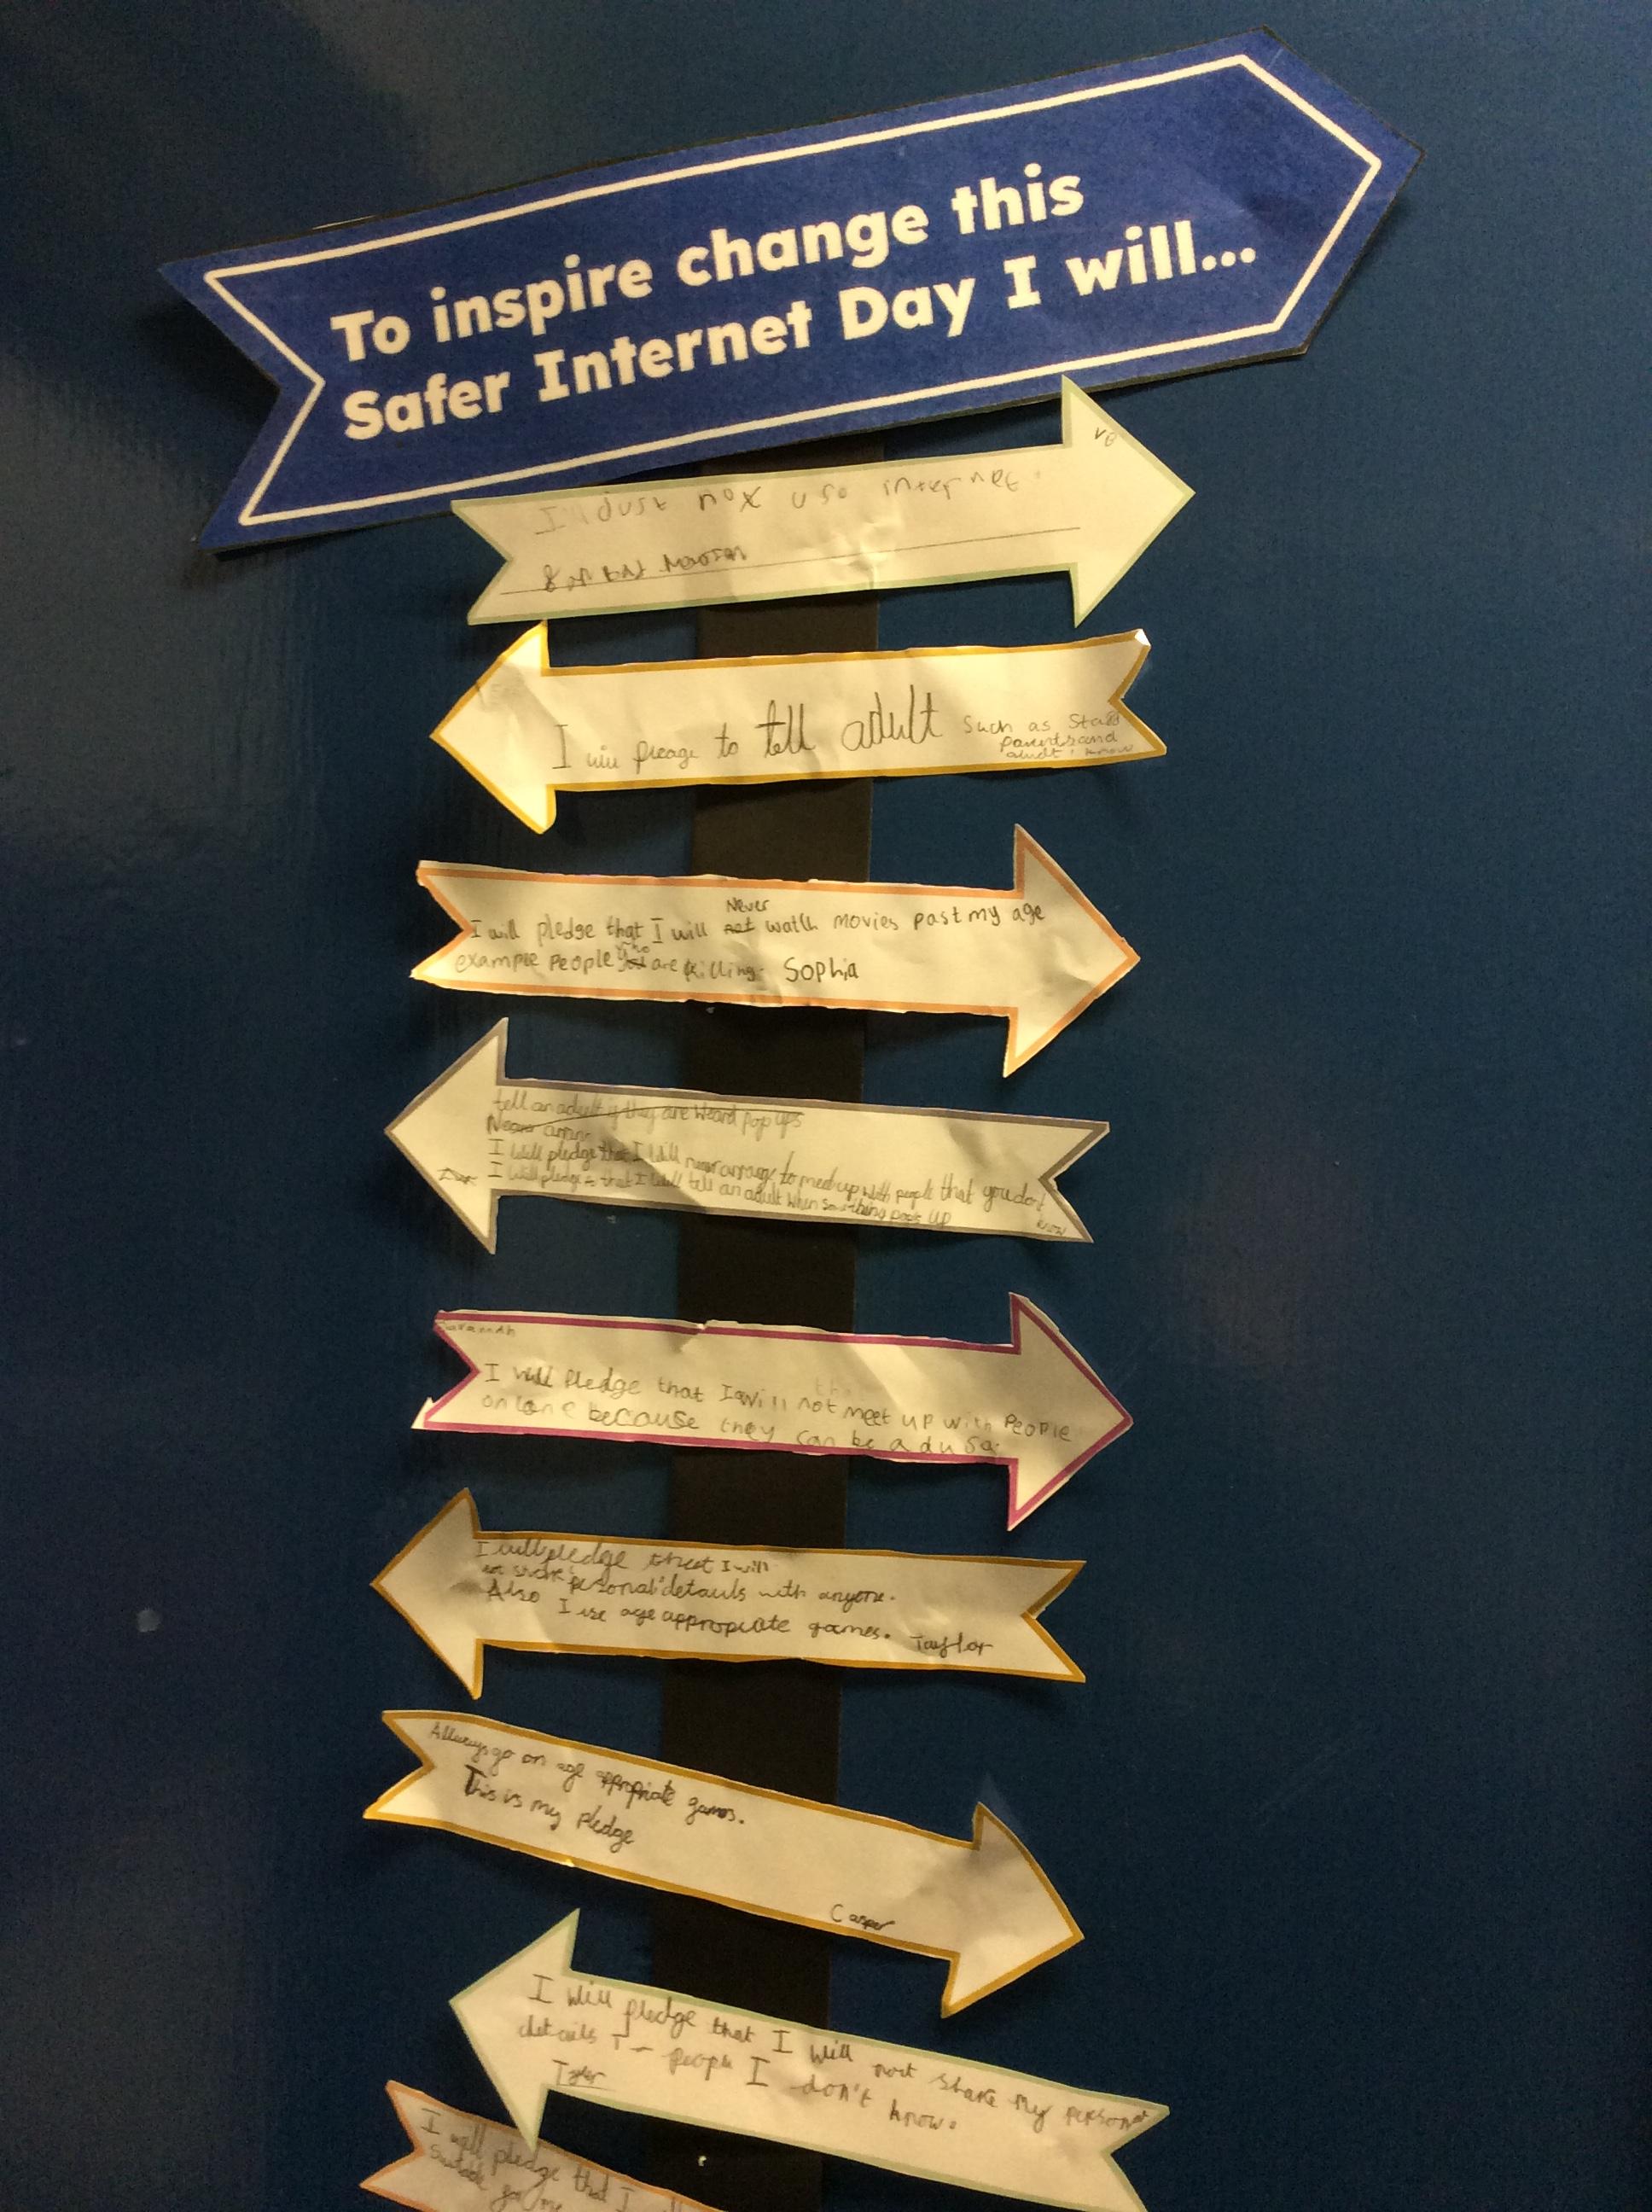 To inspire change this
Safer Internet Day I will...
I'll just not use internet.
I will pleage to tell adult such as staff
parents and
adult I know
Never
I will pledge that I will not watch movies past my age
who
example people are killing. Sophia
tell an adult if they are weard pop ups
Never
I will pledge that I will never arrange to meet up with people that you dont
know
I will pledge that I will tell an adult when something pops up
I will pledge that I will not meet up with PEOPLE
because they can be a
I will pledge that I will
not share personal details with anyone.
Also I use age appropiate games. Taylor
Allways go on age appropriate games.
This is my pledge
Casper
I will pledge that I will not share my personal
details people I don't know.
Tyler
I will pledge that I